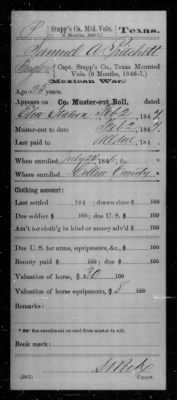 Stapp's Co. Mtd. Vols. Texas.
(6 Months, 1846-7.)
Samuel A
Capt. Stapp's Co., Texas Mounted
Vols. (6 Months, 1846-7.)
(Mexican War.)
Age years
Appears on
Co. Muster-out Roll, dated
Feb 2, 184
Muster-out to date Feb 2, 184
Last paid to
When enrolled July 184
Where enrolled Collin County
Clothing account:
Last settled , 184 ; drawn since $ 100
Due soldier $ 100; due U. S. $ 100
Am't for cloth'g in kind or money adv'd $ 100
Due U. S. for arms, equipments, &c., $ 100
Bounty paid $ 100; due $ 100
Valuation of horse, $ 30 100
Valuation of horse equipments, $ 8 100
Remarks:
Book mark:
(861) Copyist.